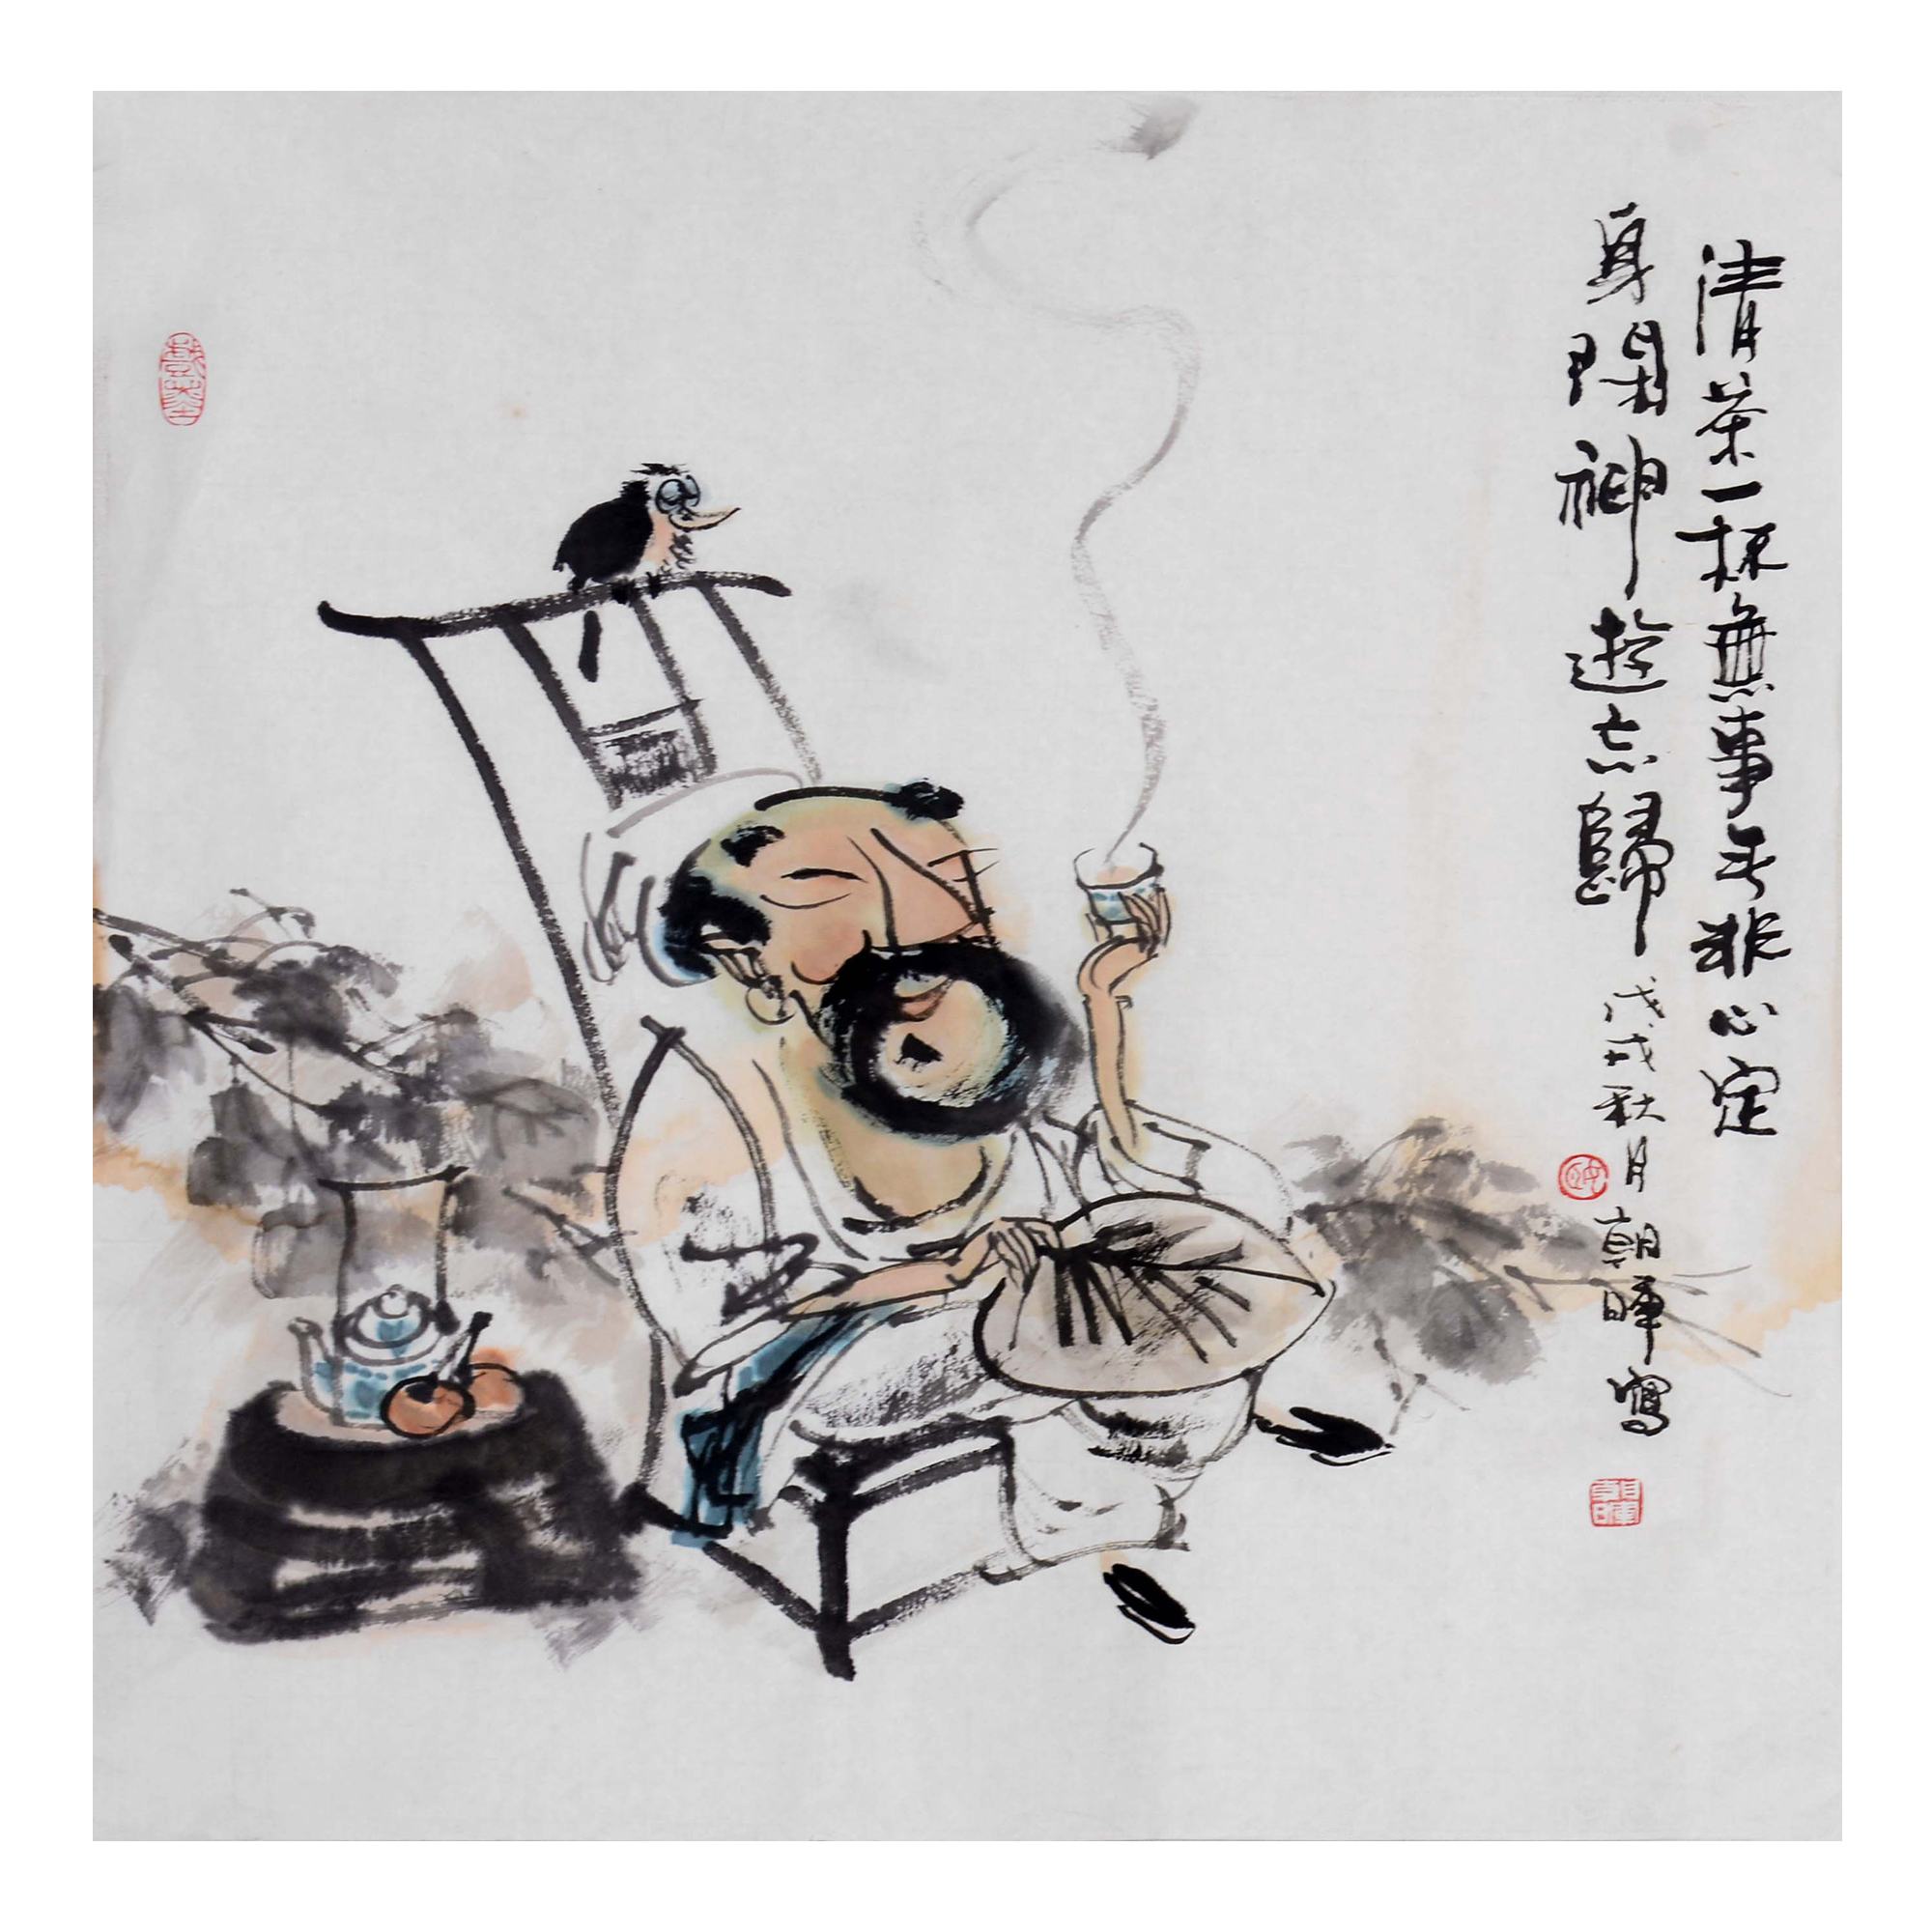 清茶一杯無事无非心定
身閑神遊忘歸 戊戌秋月朝暉寫